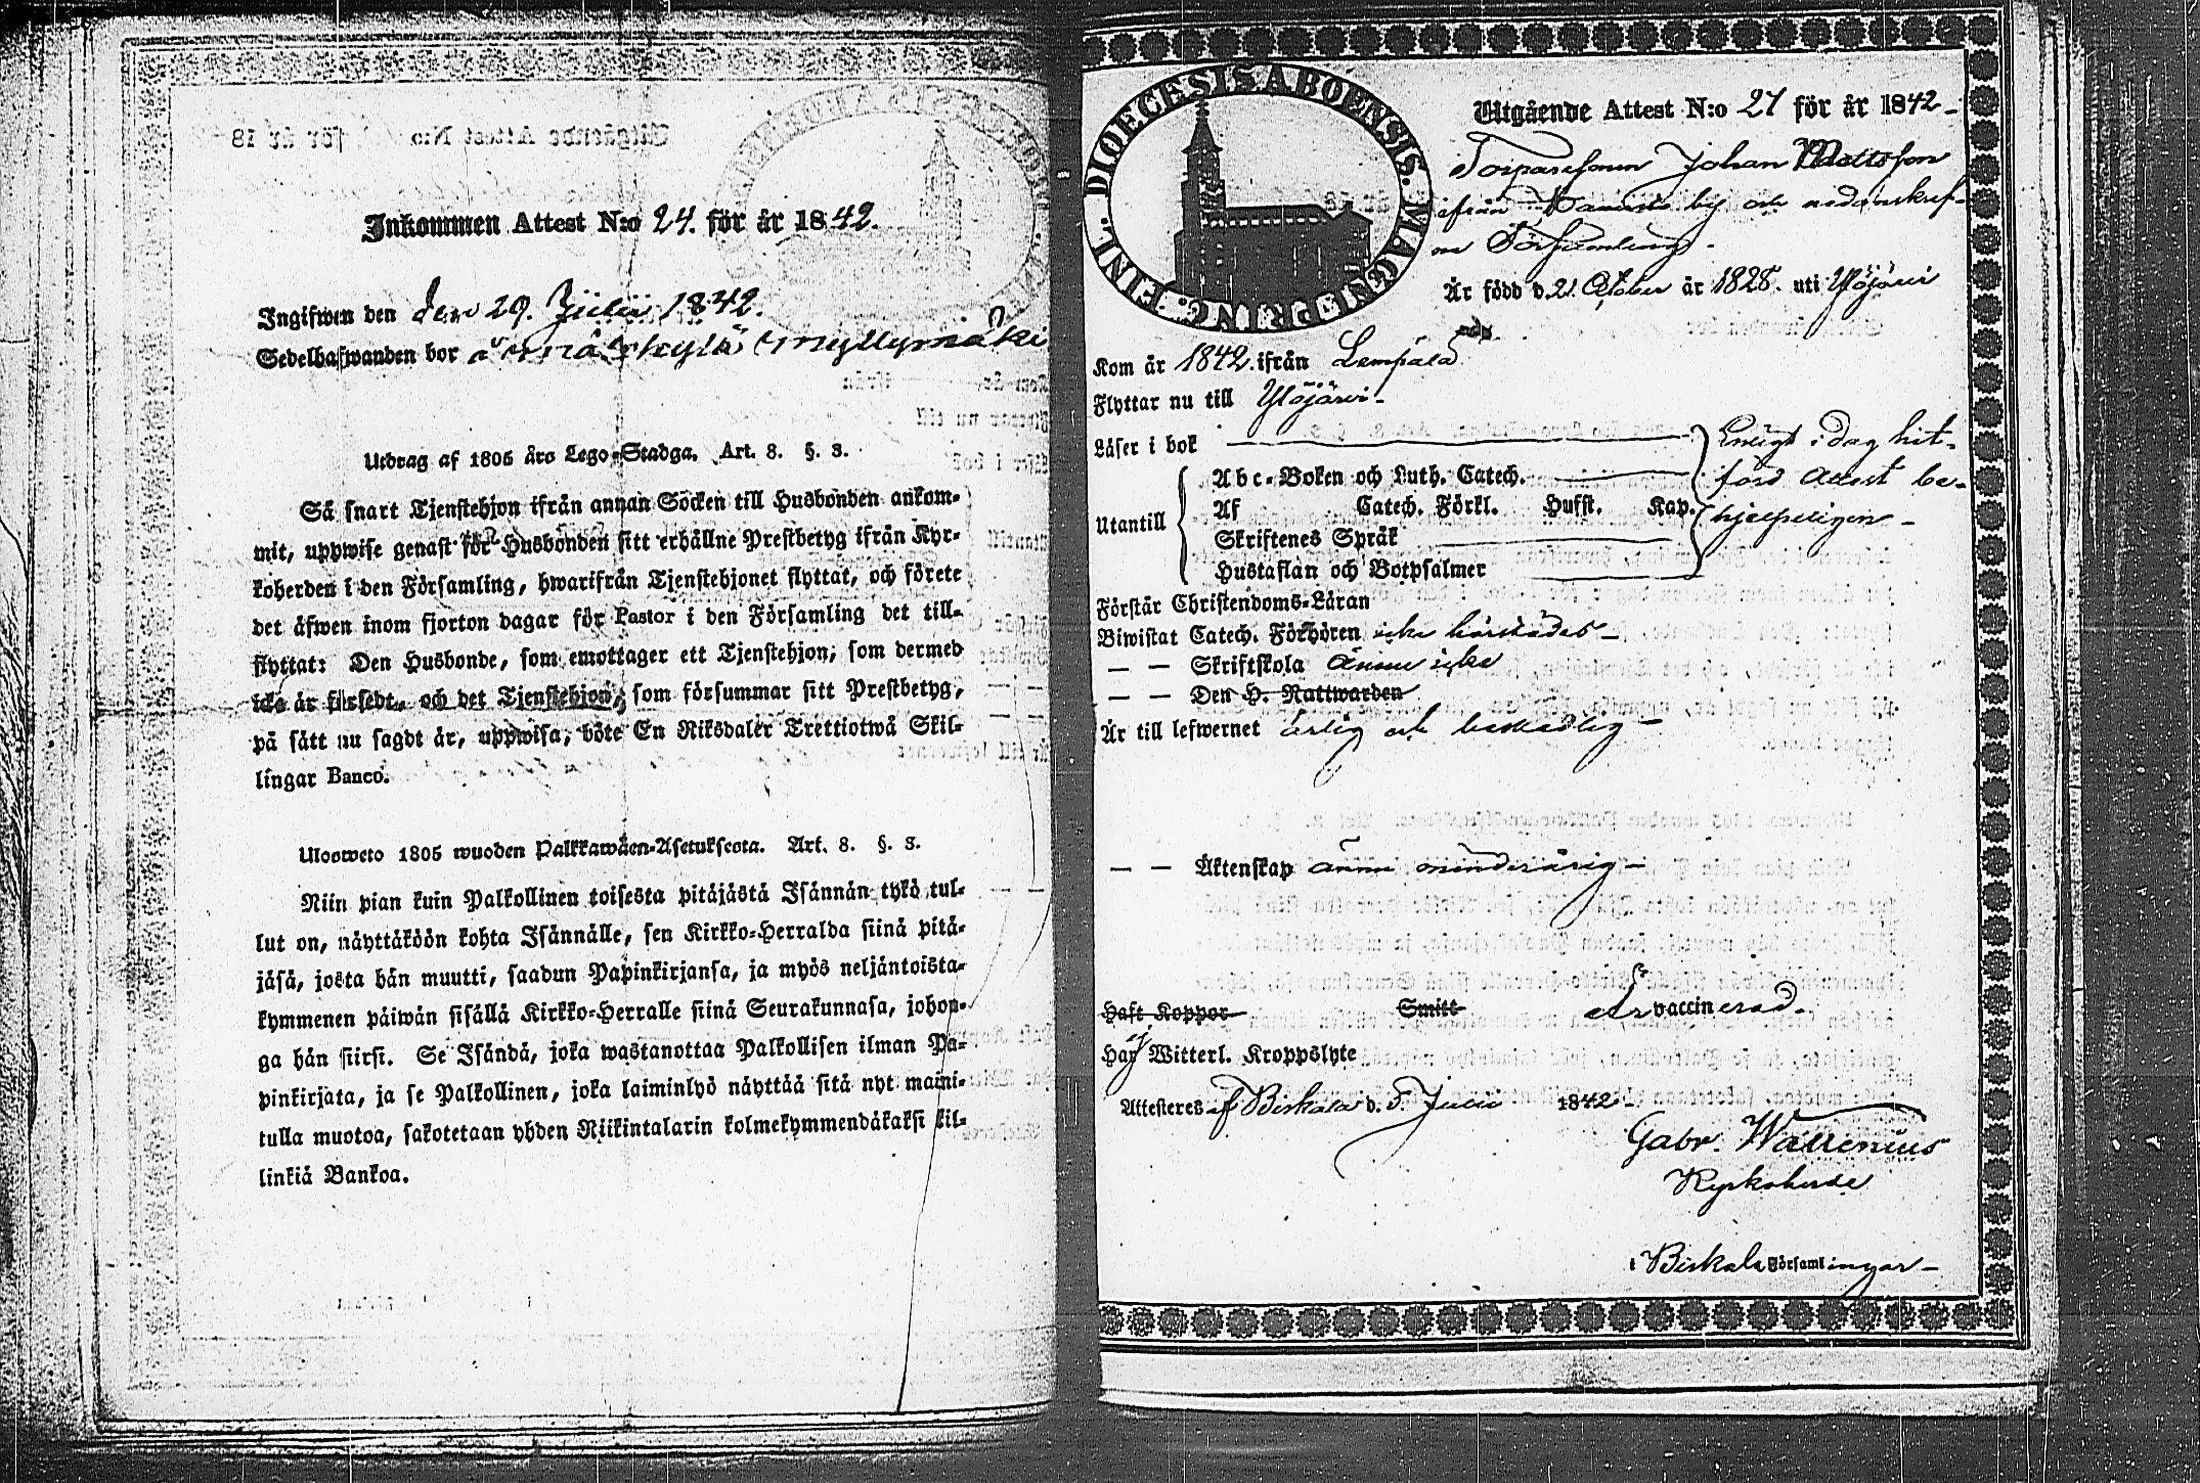 Inkommen Attest N:o 24. för år 1842.
Ingifwen den den 29. Julii 1842.
Sedelhafwanden bor Myllymäki
Utdrag af 1805 års Lego-Stadga. Art. 8. §. 3.
Så snart Tjenstehjon ifrån annan Socken till Husbonden ankom-
mit, uppwise genast för Husbonden sitt erhållne Prestbetyg ifrån Kyr-
koherden i den Församling, hwarifrån Tjenstehjonet flyttat, och förete
det äfwen inom fjorton dagar för Pastor i den Församling det till-
flyttat: Den Husbonde, som emottager ett Tjenstehjon, som dermed
icke är försedt, och det Tjenstehjon, som försummar sitt Prestbetyg,
på sätt nu sagdt är, uppwisa, böte En Riksdaler Trettiotwå Skil-
lingar Banco.
Ulosweto 1805 wuoden Palkkawäen-Asetuksesta. Art. 8. §. 3.
Niin pian kuin Palkollinen toisesta pitäjästä Isännän tykö tul-
lut on, näyttäköön kohta Isännälle, sen Kirkko-Herralda siinä pitä-
jäsä, josta hän muutti, saadun Papinkirjansa, ja myös neljäntoista-
kymmenen päiwän sisällä Kirkko-Herralle siinä Seurakunnasa, johon-
ga hän siirsi. Se Isändä, joka wastanottaa Palkollisen ilman Pa-
pinkirjata, ja se Palkollinen, joka laiminlyö näyttää sitä nyt maini-
tulla muotoa, sakotetaan yhden Riikintalarin kolmekymmendäkaksi kil-
linkiä Bankoa.
DIOECESIS ABOENSIS. MAGN. PRINC. FINL.
Utgående Attest N:o 27 för år 1842
Torparesonen Johan Mattsson
ifrån by och nedanskref-
ne Församling
Är född d. 21 October år 1828. uti Ylöjärvi
Kom år 1842. ifrån Lempälä
Flyttar nu till Ylöjärvi
Läser i bok Enligt i dag hit-
Abc-Boken och Luth. Catech. förd Attest be-
Utantill Af Catech. Förkl. Hufst. Kap. hjelpeligen
Skriftenes Språk
Hustaflan och Botpsalmer
Förstår Christendoms-Läran
Biwistat Catech. Förhören icke härstädes
— — Skriftskola ännu icke
— — Den H. Nattwarden
Är till lefwernet ärlig och beskedlig
— — Äktenskap ännu minderårig
Haft Koppor Smitt Är vaccinerad.
Har ej Witterl. Kroppslyte
Attesteres af Birkala d. 5. Julii 1842
Gabr. Wallenius
Kyrkoherde
i Birkala Församlingar